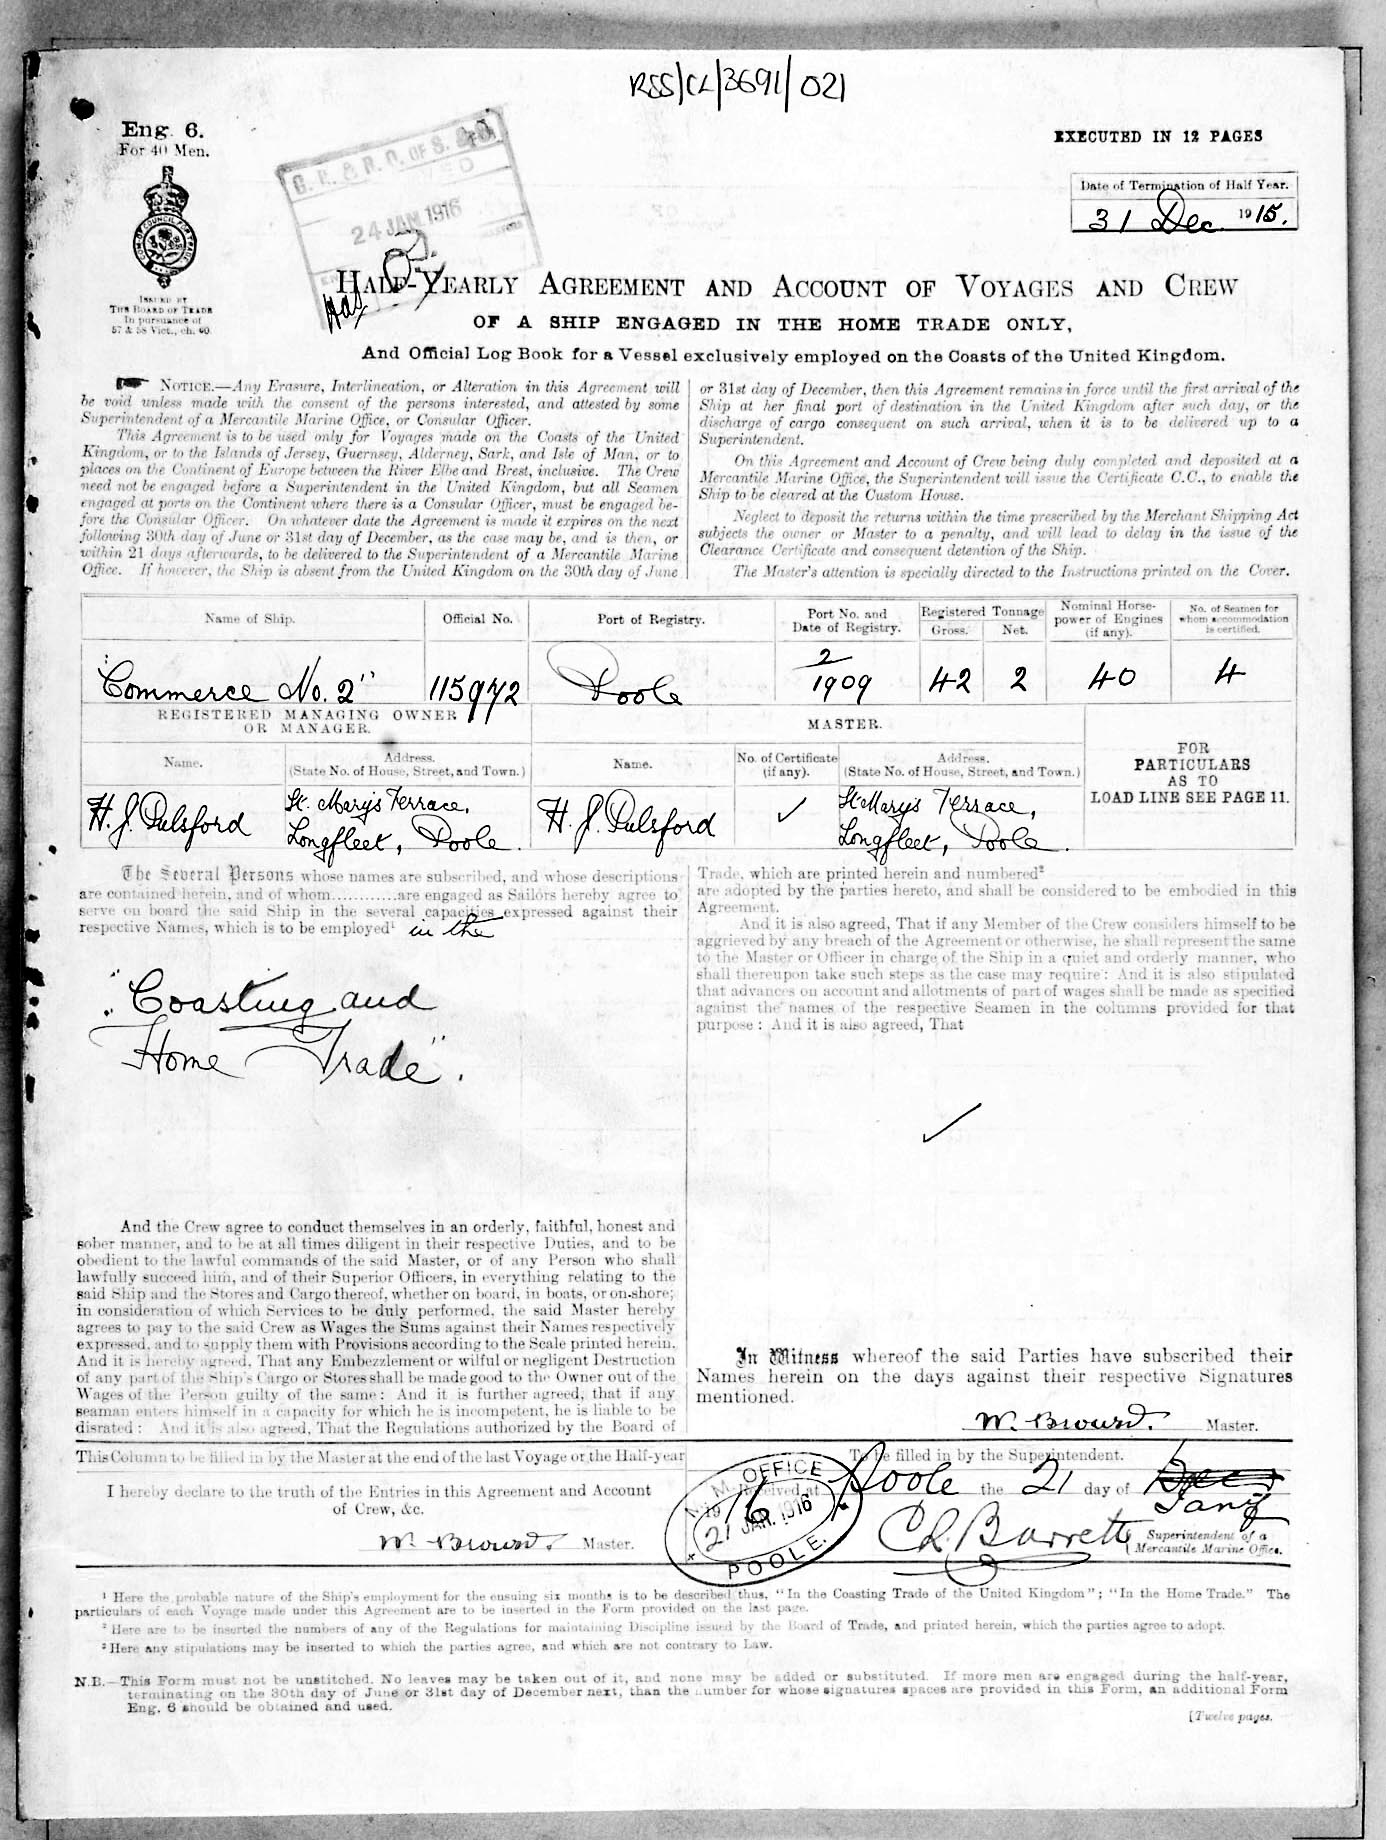 RSS/CL/3691/021
Eng. 6.
For 40 Men.
EXECUTED IN 12 PAGES
Date of Termination of Half Year.
31 Dec 1915.
24 JAN 1916
ISSUED BY
THE BOARD OF TRADE
In pursuance of
57 & 58 Vict., ch. 60.
HALF-YEARLY AGREEMENT AND ACCOUNT OF VOYAGES AND CREW
OF A SHIP ENGAGED IN THE HOME TRADE ONLY,
And Official Log Book for a Vessel exclusively employed on the Coasts of the United Kingdom.
NOTICE.—Any Erasure, Interlineation, or Alteration in this Agreement will
be void unless made with the consent of the persons interested, and attested by some
Superintendent of a Mercantile Marine Office, or Consular Officer.
This Agreement is to be used only for Voyages made on the Coasts of the United
Kingdom, or to the Islands of Jersey, Guernsey, Alderney, Sark, and Isle of Man, or to
places on the Continent of Europe between the River Elbe and Brest, inclusive. The Crew
need not be engaged before a Superintendent in the United Kingdom, but all Seamen
engaged at ports on the Continent where there is a Consular Officer, must be engaged be-
fore the Consular Officer. On whatever date the Agreement is made it expires on the next
following 30th day of June or 31st day of December, as the case may be, and is then, or
within 21 days afterwards, to be delivered to the Superintendent of a Mercantile Marine
Office. If however, the Ship is absent from the United Kingdom on the 30th day of June
or 31st day of December, then this Agreement remains in force until the first arrival of the
Ship at her final port of destination in the United Kingdom after such day, or the
discharge of cargo consequent on such arrival, when it is to be delivered up to a
Superintendent.
On this Agreement and Account of Crew being duly completed and deposited at a
Mercantile Marine Office, the Superintendent will issue the Certificate C.C., to enable the
Ship to be cleared at the Custom House.
Neglect to deposit the returns within the time prescribed by the Merchant Shipping Act
subjects the owner or Master to a penalty, and will lead to delay in the issue of the
Clearance Certificate and consequent detention of the Ship.
The Master's attention is specially directed to the Instructions printed on the Cover.
Name of Ship. Official No. Port of Registry. Port No. and Date of Registry. Registered Tonnage Gross. Net. Nominal Horse-power of Engines (if any). No. of Seamen for whom accommodation is certified.
"Commerce No. 2" 115972 Poole 2/1909 42 2 40 4
REGISTERED MANAGING OWNER
OR MANAGER.
MASTER.
FOR
PARTICULARS
AS TO
LOAD LINE SEE PAGE 11.
Name. Address. (State No. of House, Street, and Town.) Name. No. of Certificate (if any). Address. (State No. of House, Street, and Town.)
H. J. Pulsford St. Mary's Terrace, Longfleet, Poole. H. J. Pulsford ✓ St. Mary's Terrace, Longfleet, Poole.
The Several Persons whose names are subscribed, and whose descriptions
are contained herein, and of whom.............are engaged as Sailors hereby agree to
serve on board the said Ship in the several capacities expressed against their
respective Names, which is to be employed¹ in the
"Coasting and
Home Trade".
And the Crew agree to conduct themselves in an orderly, faithful, honest and
sober manner, and to be at all times diligent in their respective Duties, and to be
obedient to the lawful commands of the said Master, or of any Person who shall
lawfully succeed him, and of their Superior Officers, in everything relating to the
said Ship and the Stores and Cargo thereof, whether on board, in boats, or on-shore;
in consideration of which Services to be duly performed, the said Master hereby
agrees to pay to the said Crew as Wages the Sums against their Names respectively
expressed, and to supply them with Provisions according to the Scale printed herein.
And it is hereby agreed, That any Embezzlement or wilful or negligent Destruction
of any part of the Ship's Cargo or Stores shall be made good to the Owner out of the
Wages of the Person guilty of the same: And it is further agreed, that if any
seaman enters himself in a capacity for which he is incompetent, he is liable to be
disrated: And it is also agreed, That the Regulations authorized by the Board of
Trade, which are printed herein and numbered²
are adopted by the parties hereto, and shall be considered to be embodied in this
Agreement.
And it is also agreed, That if any Member of the Crew considers himself to be
aggrieved by any breach of the Agreement or otherwise, he shall represent the same
to the Master or Officer in charge of the Ship in a quiet and orderly manner, who
shall thereupon take such steps as the case may require: And it is also stipulated
that advances on account and allotments of part of wages shall be made as specified
against the names of the respective Seamen in the columns provided for that
purpose: And it is also agreed, That
✓
In Witness whereof the said Parties have subscribed their
Names herein on the days against their respective Signatures
mentioned.
W. Brown. Master.
This Column to be filled in by the Master at the end of the last Voyage or the Half-year
I hereby declare to the truth of the Entries in this Agreement and Account
of Crew, &c.
W. Brown. Master.
To be filled in by the Superintendent.
Received at Poole the 21 day of Dec
Jany
1916
M. M. OFFICE
21 JAN. 1916
POOLE.
C. Barrett
Superintendent of a
Mercantile Marine Office.
¹ Here the probable nature of the Ship's employment for the ensuing six months is to be described thus, "In the Coasting Trade of the United Kingdom"; "In the Home Trade." The
particulars of each Voyage made under this Agreement are to be inserted in the Form provided on the last page.
² Here are to be inserted the numbers of any of the Regulations for maintaining Discipline issued by the Board of Trade, and printed herein, which the parties agree to adopt.
³ Here any stipulations may be inserted to which the parties agree, and which are not contrary to Law.
N.B.—This Form must not be unstitched. No leaves may be taken out of it, and none may be added or substituted. If more men are engaged during the half-year,
terminating on the 30th day of June or 31st day of December next, than the number for whose signatures spaces are provided in this Form, an additional Form
Eng. 6 should be obtained and used.
[Twelve pages.